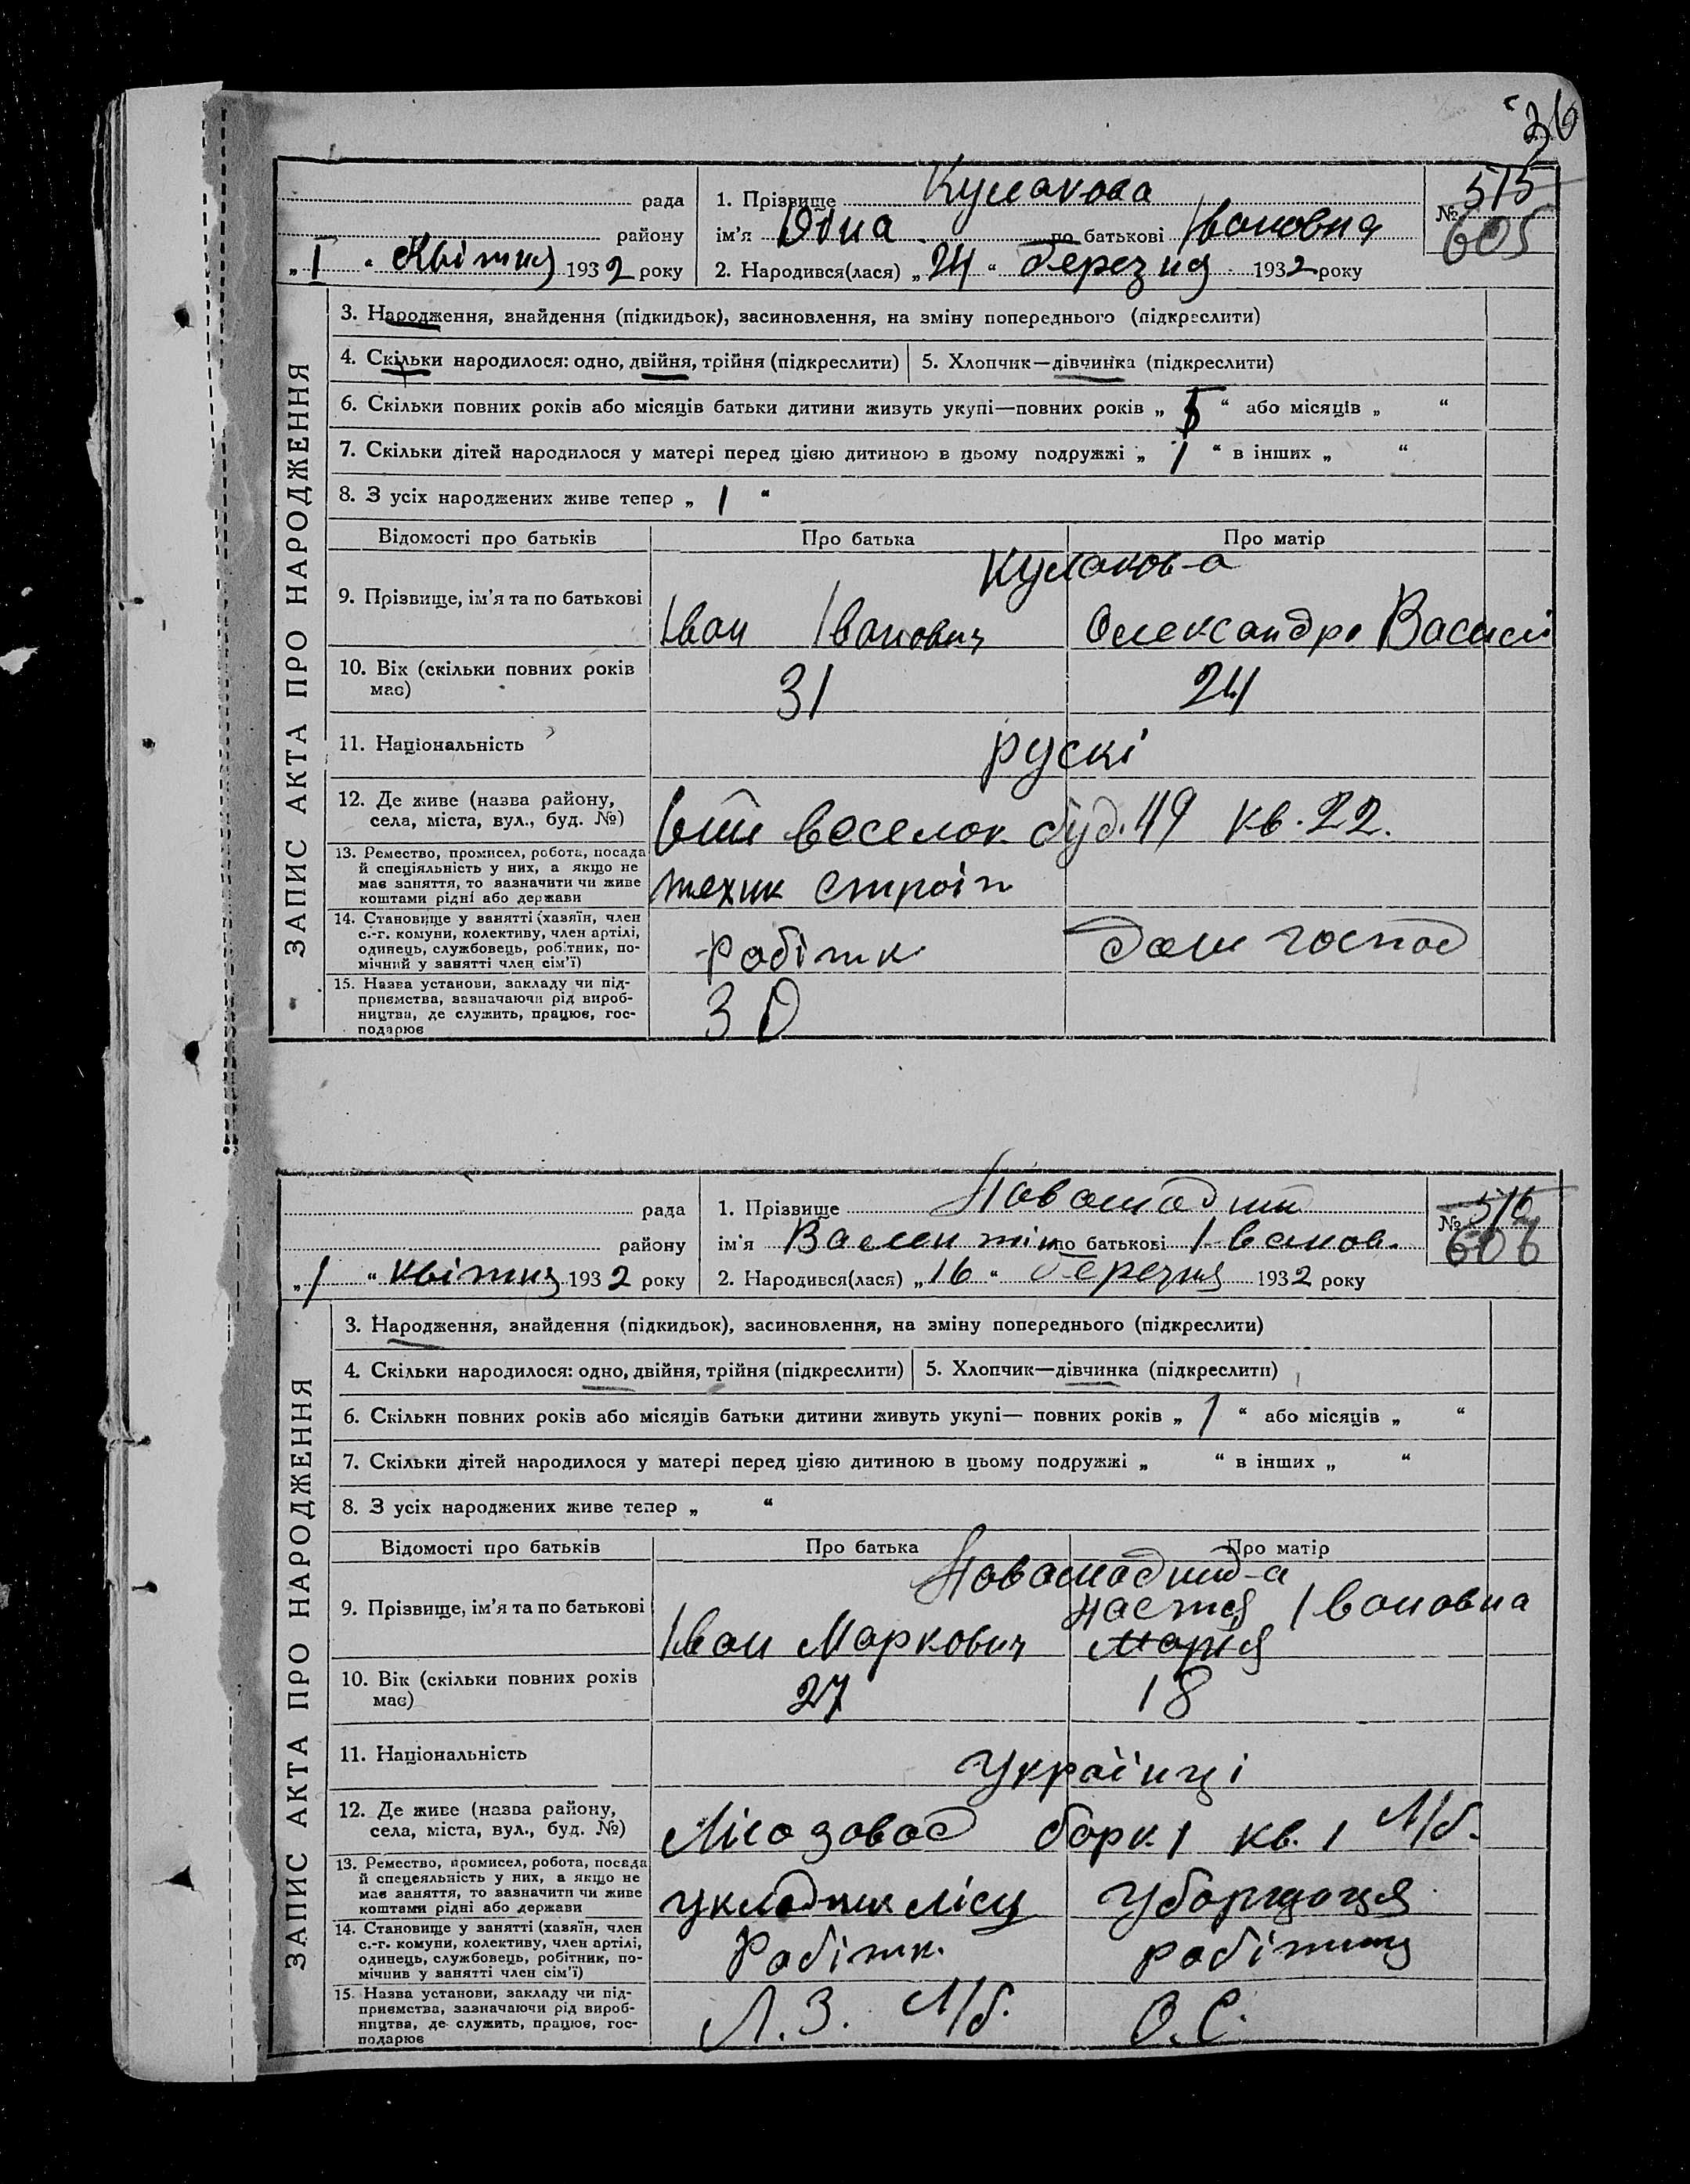 36
рада
1. Прізвище Кулакова
515
№ 605
району
ім'я по батькові Івановна
„I“ Квітня 1932 року
2. Народився(лася) „24“ березня 1932 року
ЗАПИС АКТА ПРО НАРОДЖЕННЯ
3. Народження, знайдення (підкидьок), засиновлення, на зміну попереднього (підкреслити)
4. Скільки народилося: одно, двійня, трійня (підкреслити)
5. Хлопчик—дівчинка (підкреслити)
6. Скільки повних років або місяців батьки дитини живуть укупі—повних років „5“ або місяців „ “
7. Скільки дітей народилося у матері перед цією дитиною в цьому подружжі „1“ в інших „ “
8. З усіх народжених живе тепер „1“
Відомості про батьків
Про батька
Про матір
Кулаков-а
9. Прізвище, ім'я та по батькові
Іван Іванович
Олександра Василі
10. Вік (скільки повних років
має)
31
24
11. Національність
рускі
12. Де живе (назва району,
села, міста, вул., буд. №)
буд. 49 кв. 22.
13. Ремество, промисел, робота, посада
й спеціяльність у них, а якщо не
має заняття, то зазначити чи живе
коштами рідні або держави
техник строіт
14. Становище у занятті (хазяїн, член
с.-г. комуни, колективу, член артілі,
одинець, службовець, робітник, по-
мічний у занятті член сім'ї)
робітник
дом господ
15. Назва установи, закладу чи під-
приємства, зазначаючи рід вироб-
ництва, де служить, працює, гос-
подарює
рада
1. Прізвище
516
№ 606
району
ім'я Валентін по батькові Іванов.
„1“ квітня 1932 року
2. Народився(лася) „16“ березня 1932 року
ЗАПИС АКТА ПРО НАРОДЖЕННЯ
3. Народження, знайдення (підкидьок), засиновлення, на зміну попереднього (підкреслити)
4. Скільки народилося: одно, двійня, трійня (підкреслити)
5. Хлопчик—дівчинка (підкреслити)
6. Скільки повних років або місяців батьки дитини живуть укупі— повних років „1“ або місяців „ “
7. Скільки дітей народилося у матері перед цією дитиною в цьому подружжі „ “ в інших „ “
8. З усіх народжених живе тепер „ “
Відомості про батьків
Про батька
Про матір
9. Прізвище, ім'я та по батькові
Настя Івановна
Іван Маркович
Марія
10. Вік (скільки повних років
має)
27
18
11. Національність
Українці
12. Де живе (назва району,
села, міста, вул., буд. №)
Лісозавод барк 1 кв. 1 Л/б.
13. Ремество, промисел, робота, посада
й спецеяльність у них, а якщо не
має заняття, то зазначити чи живе
коштами рідні або держави
укладник лісу
Уборщиця
14. Становище у занятті (хазяїн, член
с.-г. комуни, колективу, член артілі,
одинець, службовець, робітник, по-
мічнив у занятті член сім'ї)
Робітник.
робітниця
15. Назва установи, закладу чи під-
приємства, зазначаючи рід вироб-
ництва, де служить, працює, гос-
подарює
Л. З. Л/б.
О. С.